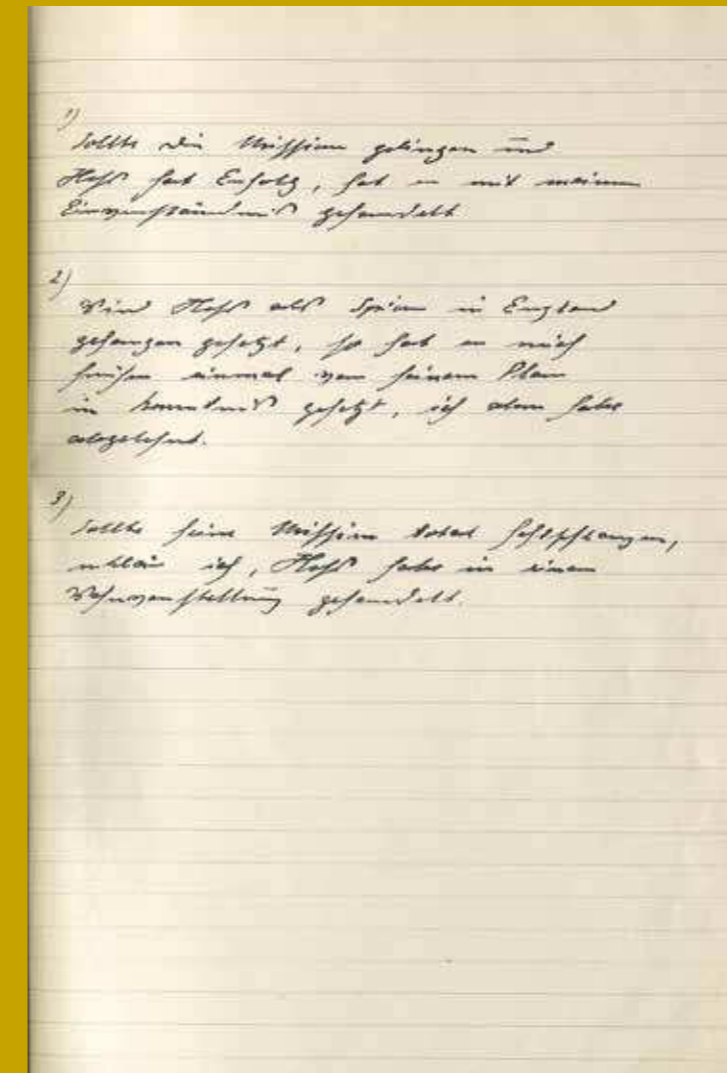 1)
Sollte die Mission gelingen und
Heß hat Erfolg, hat er mit meinem
Einverständnis gehandelt
2)
Wird Heß als Spion in England
gefangen gesetzt, so hat er mich
früher einmal von seinem Plan
in Kenntnis gesetzt, ich aber habe
abgelehnt.
3)
Sollte seine Mission total fehlschlagen,
erklär ich, Heß habe in einer
Wahnvorstellung gehandelt.